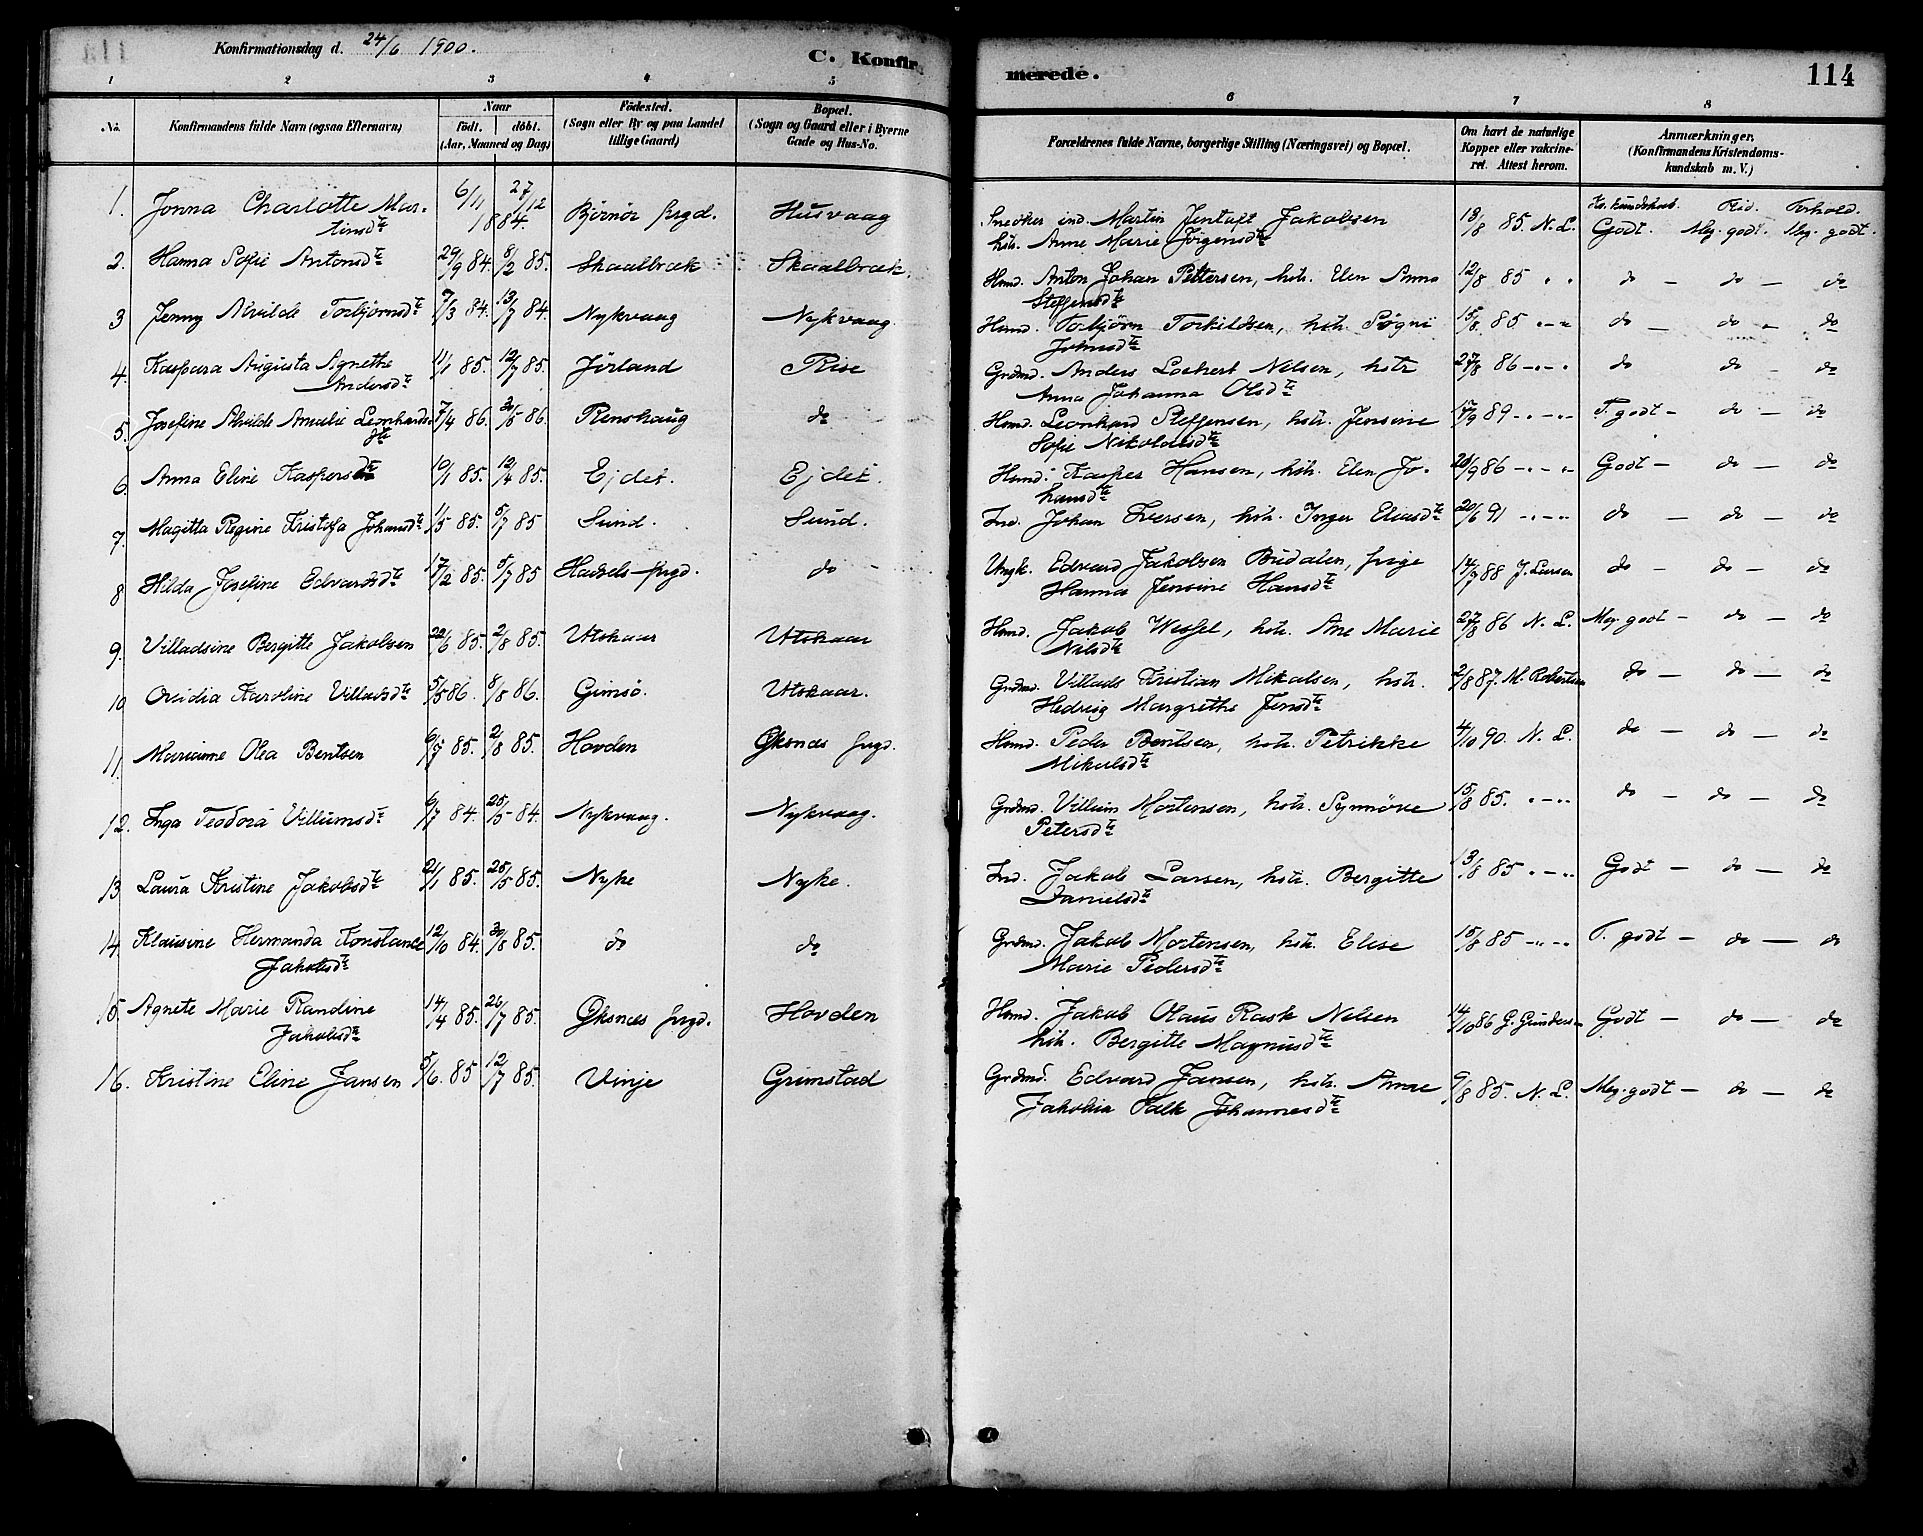 Konfirmationsdag d. 24/6 1900.
C. Konfirmerede.
114
1 2 3 4 5 6 7 8
No. Konfirmandens fulde Navn (ogsaa Efternavn) Naar født. døbt. (Aar, Maaned og Dag) Födested. (Sogn eller By og paa Landet tillige Gaard) Bopæl. (Sogn og Gaard eller i Byerne Gade og Hus-No. Forældrenes fulde Navne, borgerlige Stilling (Næringsvei) og Bopæl. Om havt de naturlige Kopper eller vakcineret. Attest herom. Anmærkninger. (Konfirmandens Kristendomskundskab m. V.)
Kr. kundskab. Flid. Forhold.
1. Jonna Charlotte Martinsdtr 6/11 27/12 1884. Björnör prgd. Husvaag Snedker ind. Martin Jentoft Jakobsen 18/8 85. N. L. Godt. Meg. godt. Meg. godt.
hstr. Anne Marie Jörgensdtr
2. Hanna Sofie Antonsdtr 29/9 84. 8/2 85. Skaalbræk Skaalbræk. Hmd. Anton Johan Pettersen, hstr. Elen Anna 12/8 85 " " do — do — do
Steffensdtr
3 Jenny Alvilde Torbjörnsdtr 7/3 84. 13/7 84. Nykvaag Nykvaag. Hmd. Torbjörn Torkildsen, hstr. Signi 15/8 85 " - " do — do — do
Johnsdtr
4. Kaspara Augusta Agnethe 11/1 85. 12/7 85. Jörland Rise Grdmd. Anders Lockert Nilsen, hstr 27/8 86 - " - " do — do — do
Andersdtr Anna Johanna Olsdtr
5. Josefine Alvilde Amalie Leonhardsdtr 7/4 86. 30/5 86. Renshaug do Hmd. Leonhard Steffensen, hstr. Jensine 17/9 89 - " - " T. godt — do — do
Sofie Nikolaisdtr
6. Anna Eline Kaspersdtr 10/1 85. 12/4 85. Ejdet. Ejdet. Hmd. Kasper Hansen, hstr. Elen Jo- 20/9 86 - " - " Godt — do — do
hansdtr
7. Magitta Regine Kristofa Johansdtr 11/5 85. 5/7 85 Sund. Sund. Ind. Johan Iversen, hstr. Inger Eliasdtr 20/6 91 - " - " do — do — do
8 Hilda Josefine Edvardsdtr 17/2 85. 5/7 85 Hadsels prgd. do Ungk. Edvard Jakobsen Budalen, pige 14/9 88 J. Larsen do — do — do
Hanna Jensine Hansdtr
9. Villadsine Bergitte Jakobsen 22/6 85. 2/8 85. Utskaar Utskaar Hmd. Jakob Wessel, hstr. Ane Marie 27/8 86 N. L. Meg. godt — do — do
Nilsdtr
10 Ovidia Karoline Villadsdtr 5/5 86. 8/8 86. Gimsö. Utskaar. Grdmd. Villads Kristian Mikalsen, hstr. 2/8 87. M. Robertsen do — do — do
Hedvig Margrethe Jensdtr
11. Marianne Olea Bentsen 6/7 85. 2/8 85. Hovden Öksnes prgd. Hmd. Peder Bentsen, hstr. Petrikke 4/10 90. N. L. do — do — do
Mikalsdtr
12. Inga Teodora Villumsdtr 6/7 84. 25/5 84. Nykvaag. Nykvaag. Grdmd. Villum Mortensen, hstr. Synnöve 15/8 85. " - " do — do — do
Petersdtr
13 Laura Kristine Jakobsdtr 21/1 85. 25/5 85. Nyke Nyke. Ind. Jakob Larsen, hstr. Bergitte 13/8 85 " - " Godt — do — do
Danielsdtr
14. Klausine Hermanda Konstance 12/10 84. 30/8 85. do do Grdmd. Jakob Mortensen, hstr. Elise 15/8 85 - " - " T. godt — do — do
Jakobsdtr Marie Pedersdtr
15. Agnete Marie Randine 14/4 85. 26/7 85. Öksnes prgd. Hovden Hmd. Jakob Olaus Rask Nilsen 14/10 86 G. Gundersen Godt — do — do
Jakobsdtr hstr. Bergitte Magnusdtr
16. Kristine Eline Jansen 5/6. 85 12/7 85. Vinje Grimstad Grdmd. Edvard Jansen, hstr. Anna 9/8 85. N. L. Meg. godt — do — do
Jakobia Falk Johannesdtr